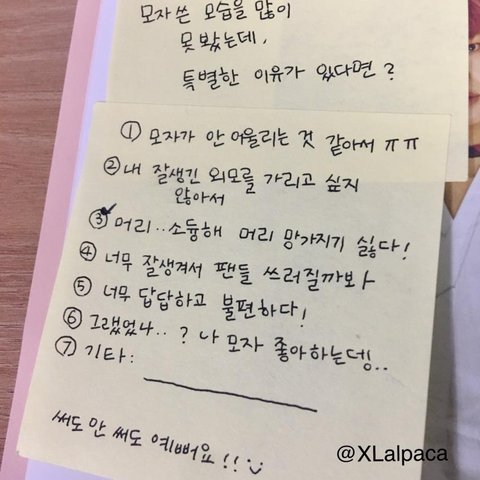 모자 쓴 모습을 많이
못 봤는데,
특별한 이유가 있다면?
① 모자가 안 어울리는 것 같아서 ㅠㅠ
② 내 잘생긴 외모를 가리고 싶지
않아서
③ 머리.. 소듕해 머리 망가지기 싫다!
④ 너무 잘생겨서 팬들 쓰러질까봐
⑤ 너무 답답하고 불편하다!
⑥ 그랬었나..? 나 모자 좋아하는데..
⑦ 기타:
써도 안 써도 예뻐요!!
@XLalpaca